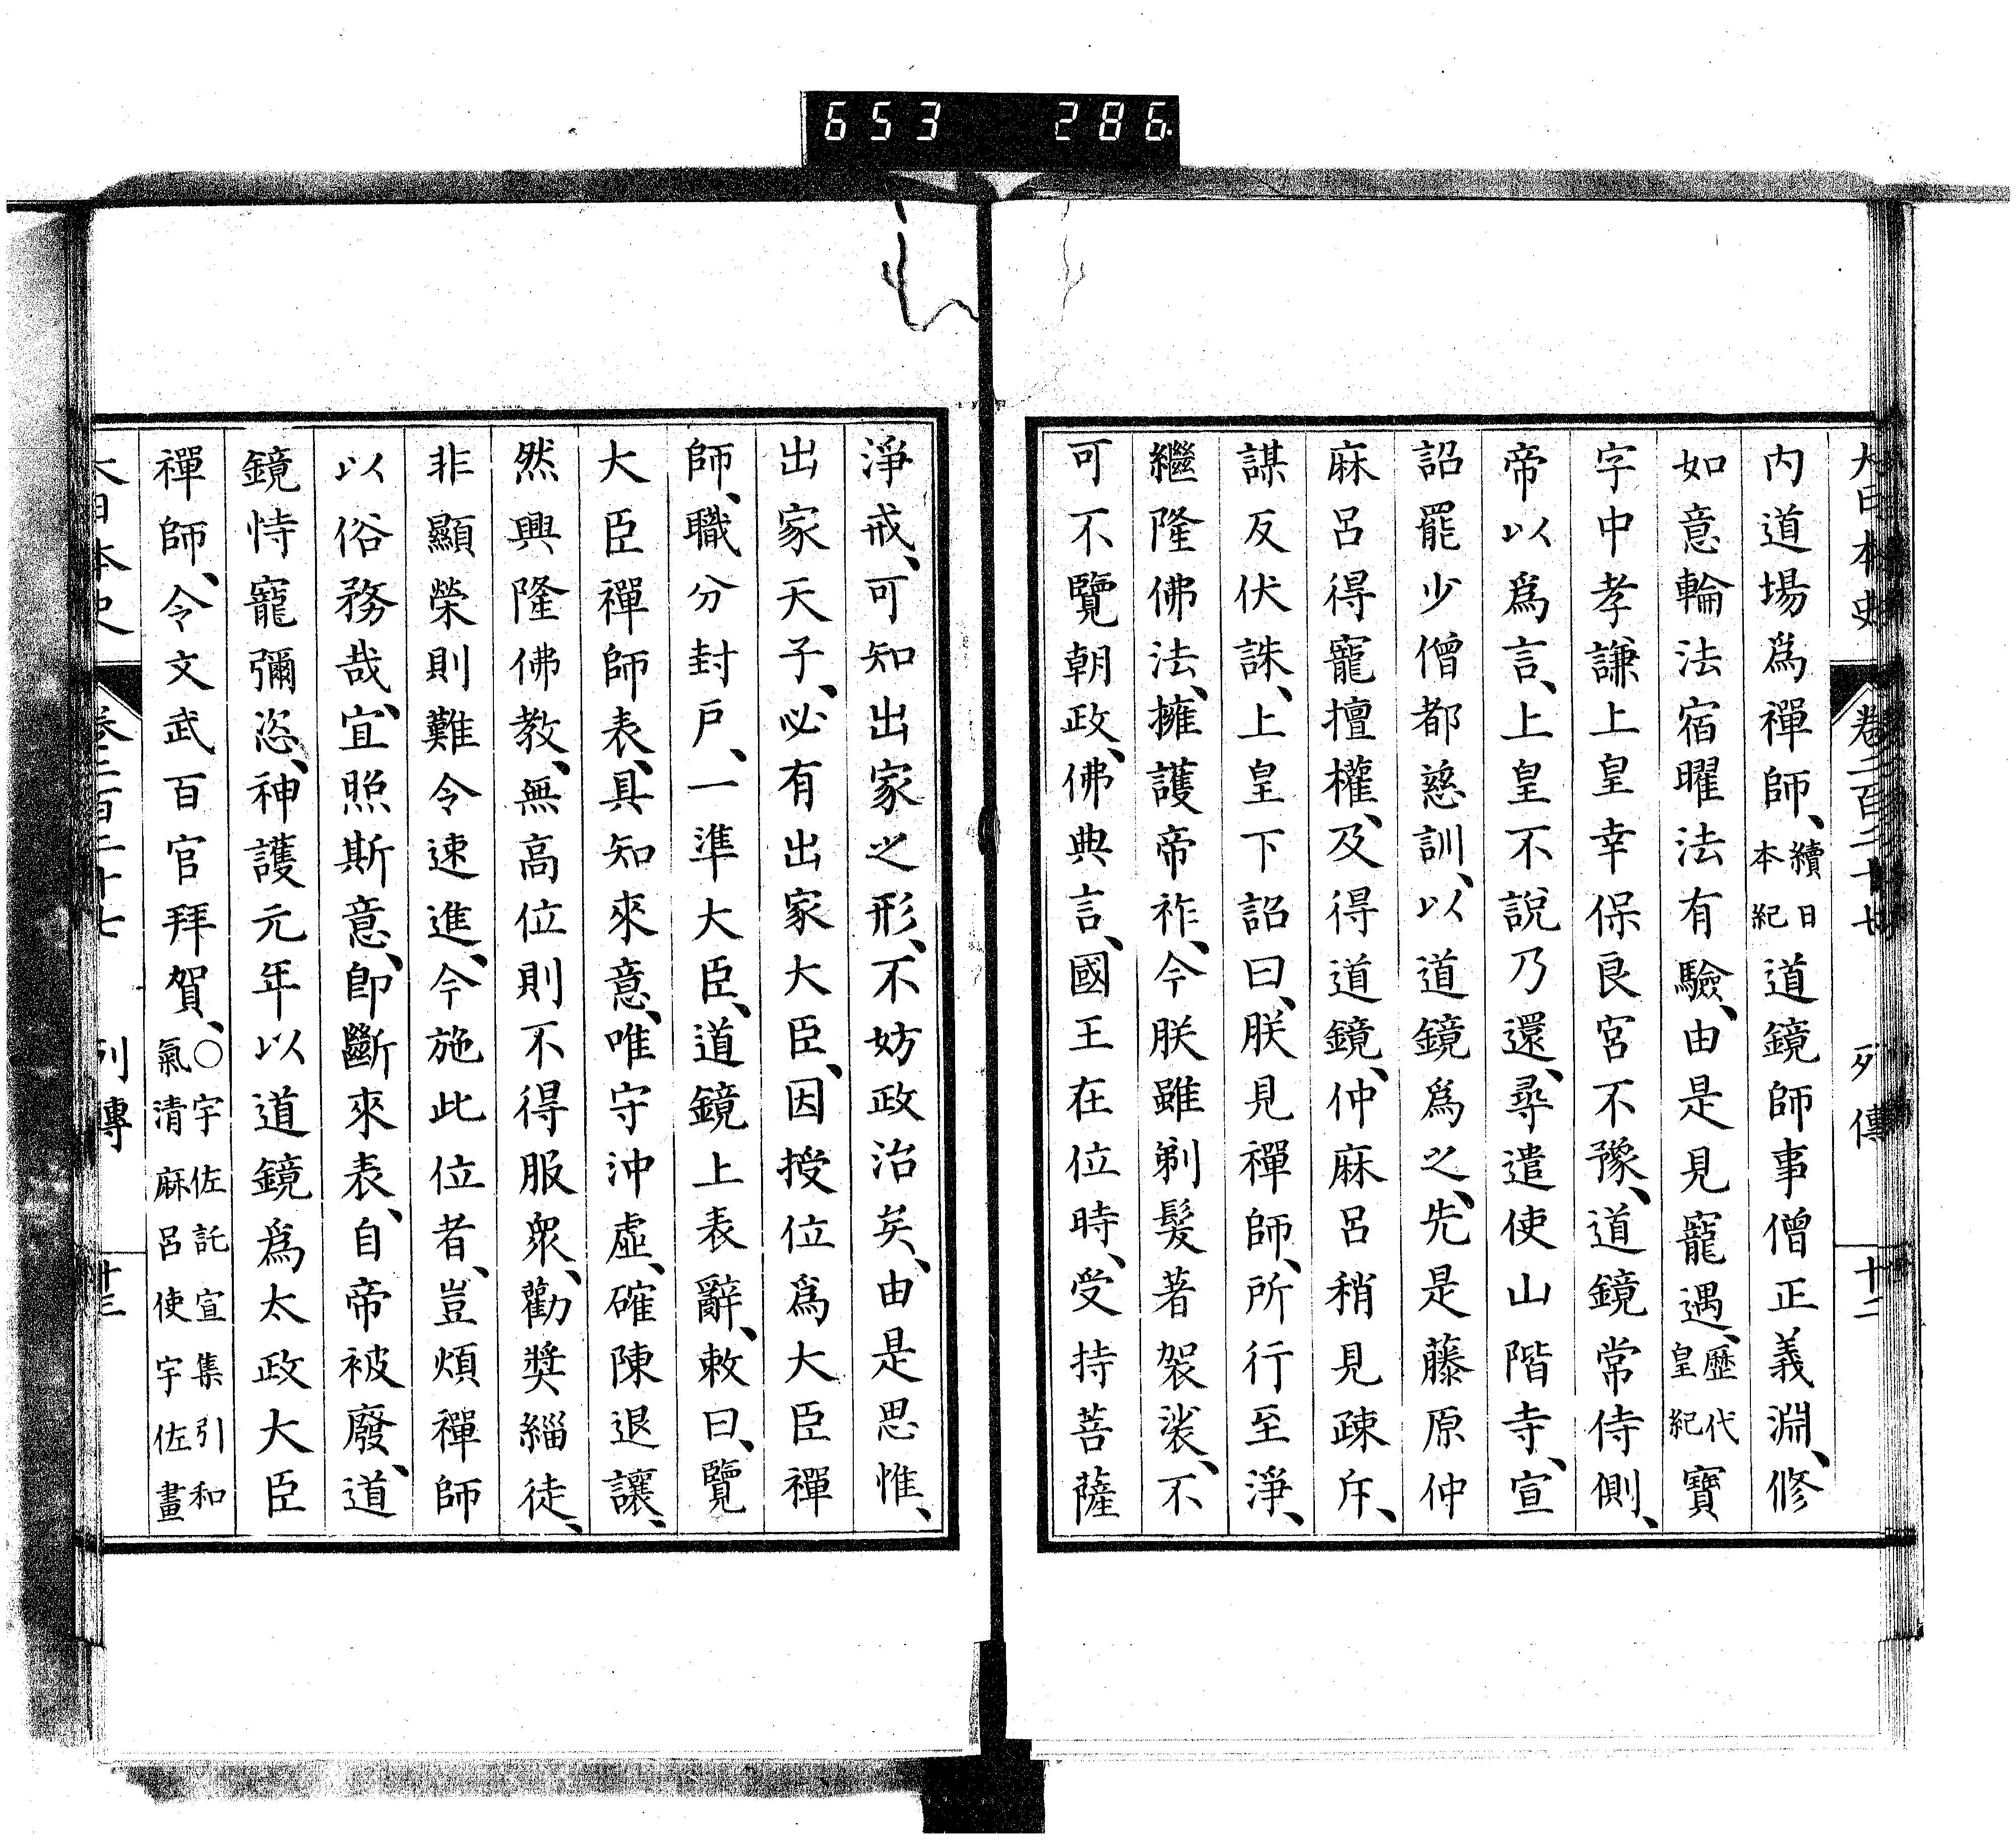 653 286
大日本史 卷二百二十七 列傳 十二
內道場爲禪師、續日本紀道鏡師事僧正義淵、修
如意輪法宿曜法有驗、由是見寵遇、歷代皇紀寶
字中孝謙上皇幸保良宮不豫、道鏡常侍側、
帝以爲言、上皇不說乃還、尋遣使山階寺、宣
詔罷少僧都慈訓、以道鏡爲之、先是藤原仲
麻呂得寵擅權、及得道鏡、仲麻呂稍見疎斥、
謀反伏誅、上皇下詔曰、朕見禪師、所行至淨、
繼隆佛法、擁護帝祚、今朕雖剃髮著袈裟、不
可不覽朝政、佛典言、國王在位時、受持菩薩
淨戒、可知出家之形、不妨政治矣、由是思惟、
出家天子、必有出家大臣、因授位爲大臣禪
師、職分封戶、一準大臣、道鏡上表辭、敕曰、覽
大臣禪師表、具知來意、唯守沖虛、確陳退讓、
然興隆佛教、無高位則不得服衆、勸獎緇徒、
非顯榮則難令速進、今施此位者、豈煩禪師
以俗務哉、宜照斯意、卽斷來表、自帝被廢、道
鏡恃寵彌恣、神護元年以道鏡爲太政大臣
禪師、令文武百官拜賀、○宇佐託宣集引和氣清麻呂使宇佐畫
大日本史 卷二百二十七 列傳 十三